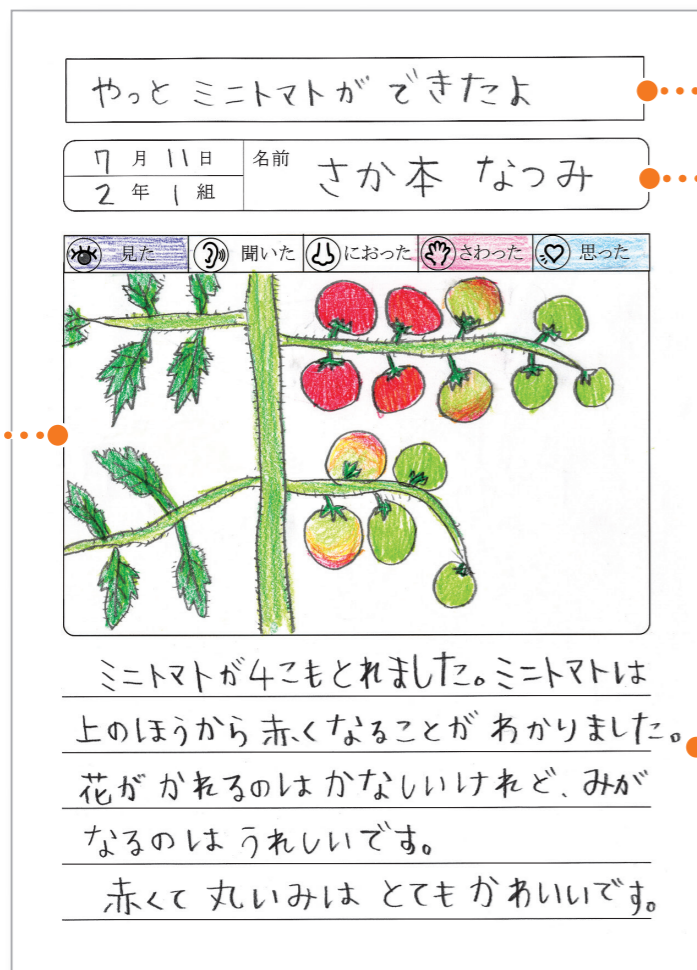 やっと ミニトマトが できたよ
7月11日
名前 さか本 なつみ
2年1組
見た 聞いた におった さわった 思った
ミニトマトが4こもとれました。ミニトマトは
上のほうから 赤くなることが わかりました。
花が かれるのは かなしいけれど、みが
なるのは うれしいです。
赤くて 丸いみは とても かわいいです。